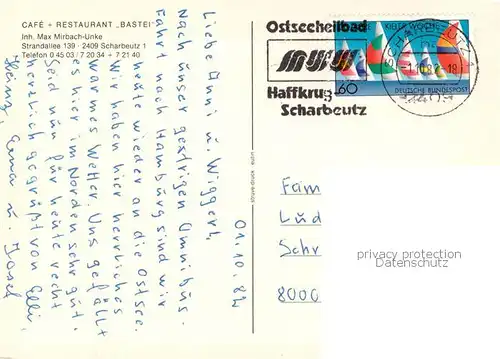 CAFÉ + RESTAURANT „BASTEI"
Inh. Max Mirbach-Unke
Strandallee 139 · 2409 Scharbeutz 1
Telefon 0 45 03 / 7 20 34 + 7 21 40
01.10.82
Liebe Anni u. Wiggerl,
Nach unser gestrigen Omnibus-
Fahrt nach Hamburg sind wir
heute wieder an die Ostsee.
Wir haben hier herrliches
warmes Wetter. Uns gefällt
es hier im Norden sehr gut.
Seid nun für heute recht
herzlich gegrüßt von Elli,
Hans, u. Josef
Ostseeheilbad
Haffkrug-
Scharbeutz
KIELER WOCHE
60
DEUTSCHE BUNDESPOST
SCHARBEUTZ 1
-1.10.82-18
Fam
Lud
Schr
8000
privacy protection
Datenschutz